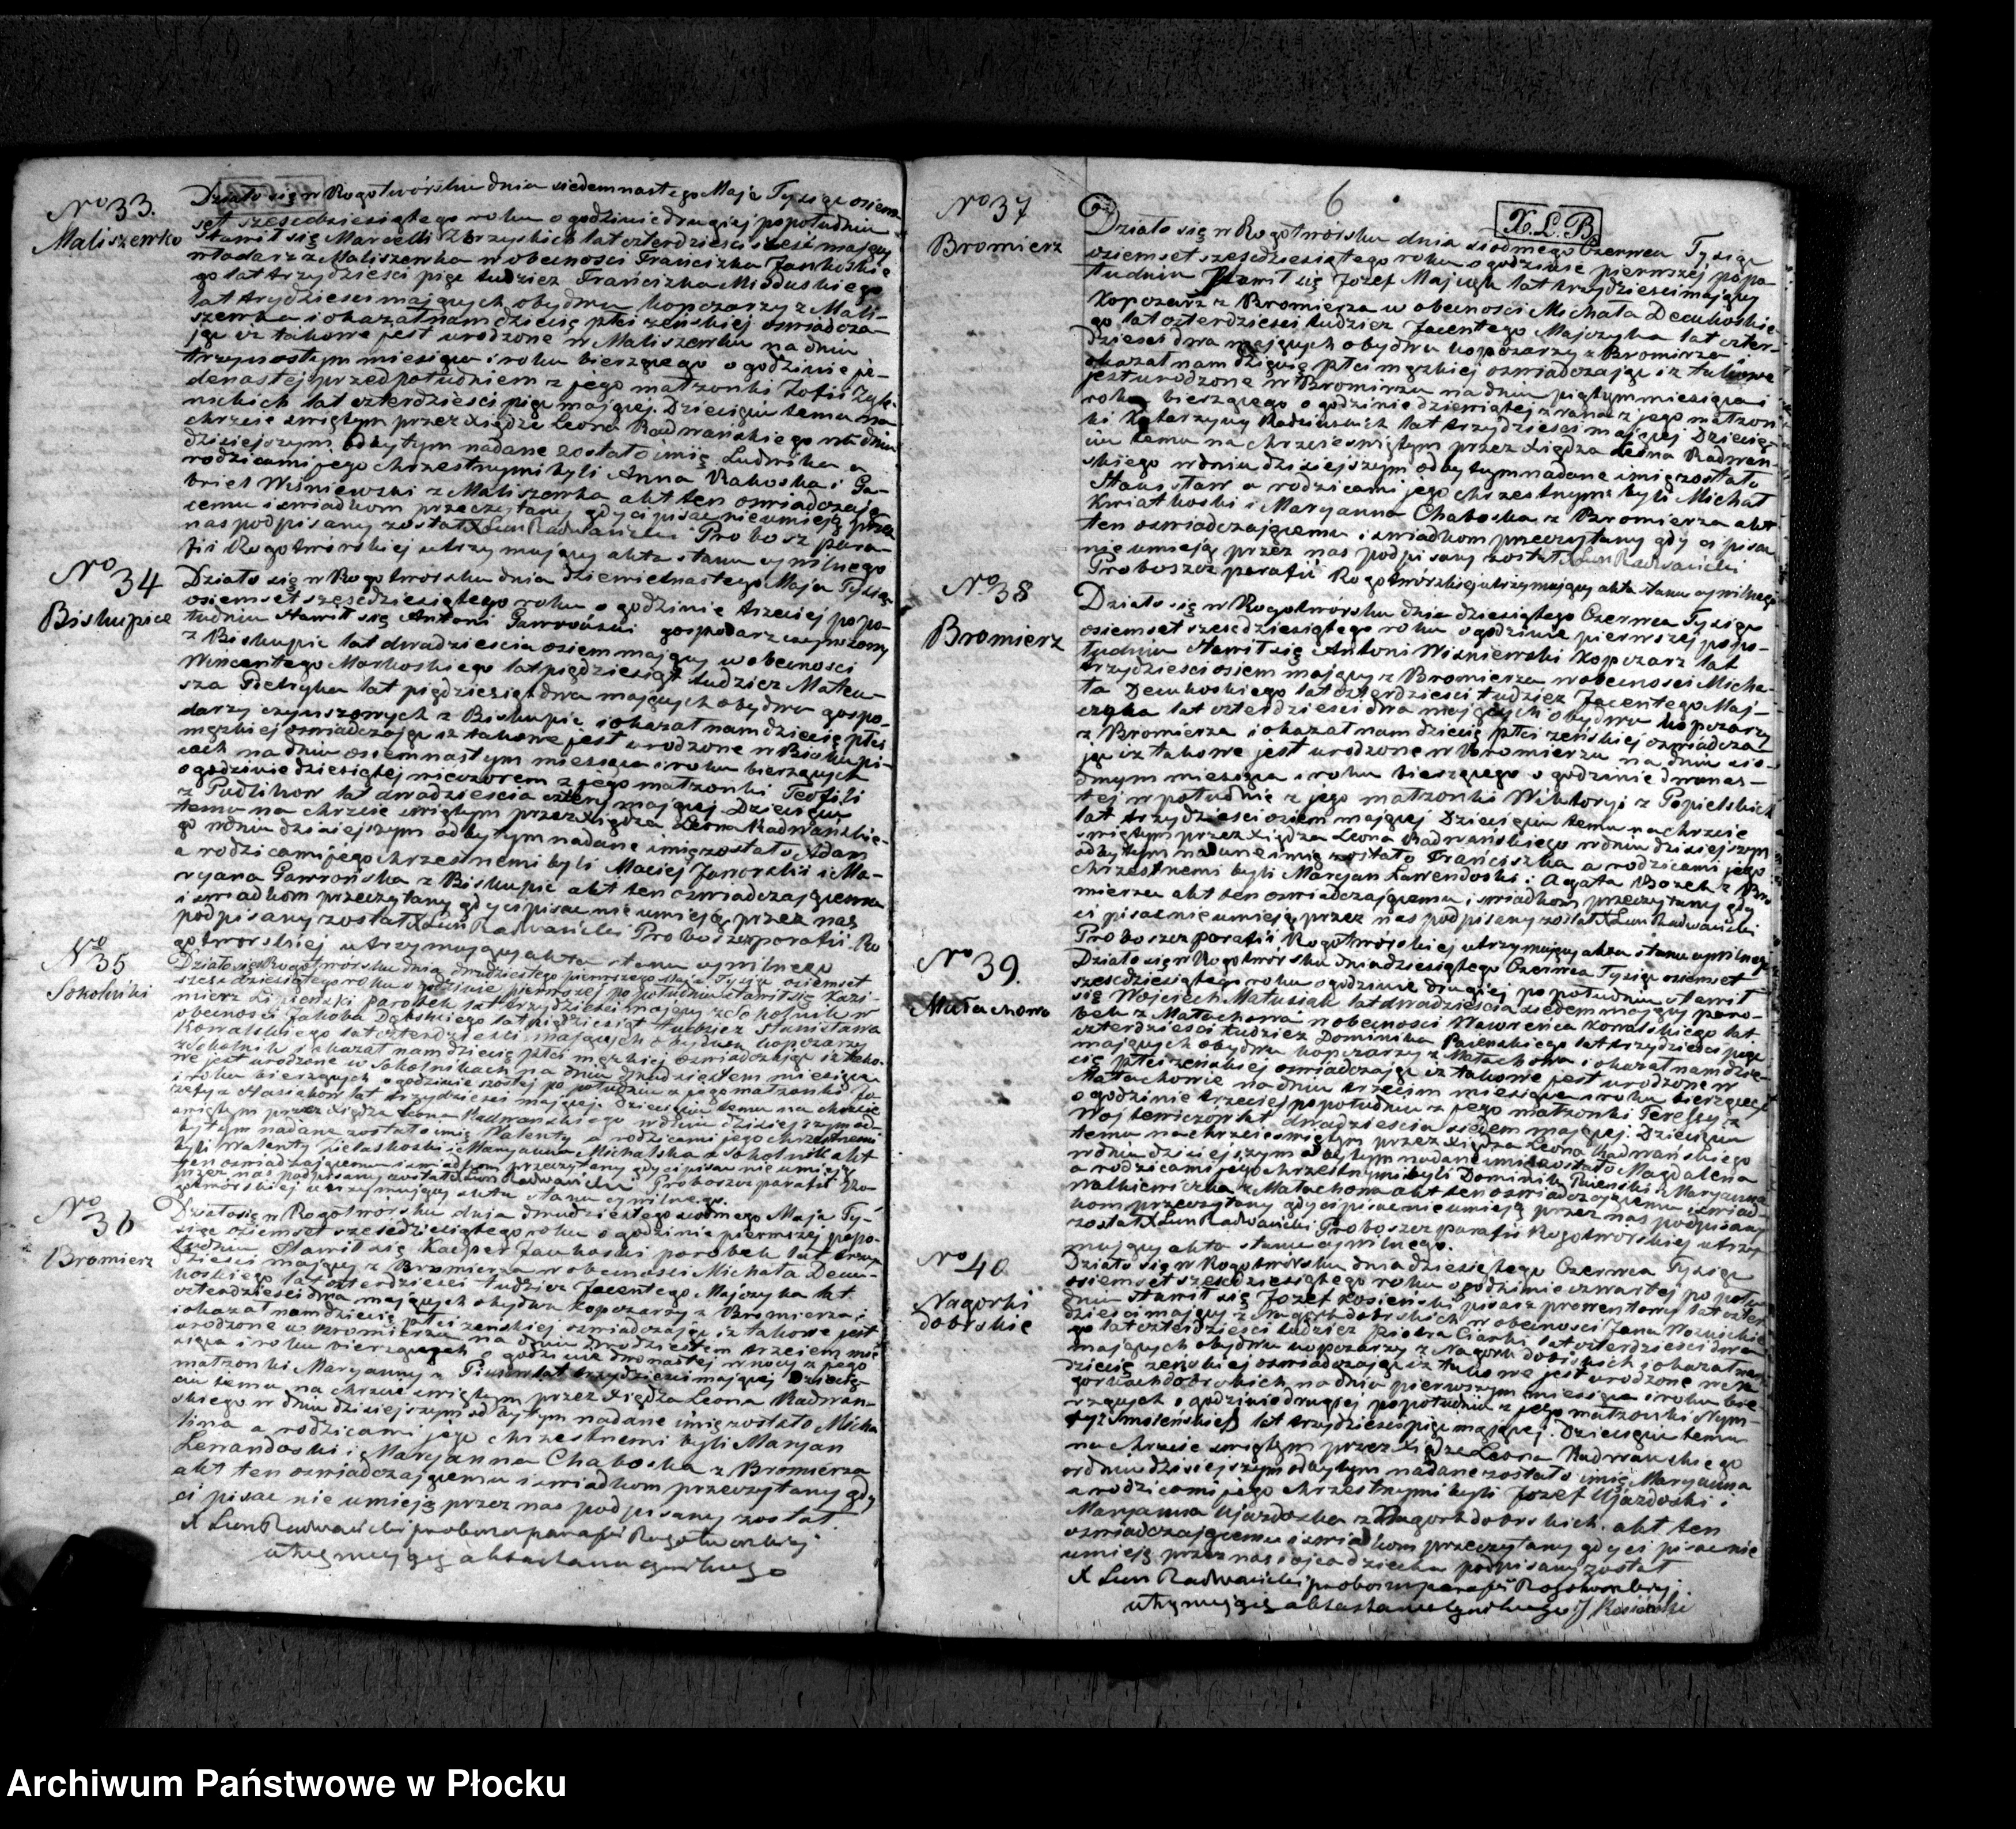 No 33.
Maliszewko
Działo się w Rogotwórsku dnia siedemnastego Maja Tysiąc osiem-
set sześćdziesiątego roku o godzinie drugiej popołudniu
Stawił się Marcelli Zbrzyskich lat czterdzieści sześć mający
włodarz z Maliszewka w obecności Franciszka Jankoskie
go lat trzydzieści pięć tudzież Franciszka
lat trzydzieści mających obydwu kopczarzy z Mali-
szewka i okazał nam dziecię płci żeńskiej oświadcza-
jąc iż takowe jest urodzone w Maliszewku na dniu
trzynastym miesiąca i roku bieżącego o godzinie je-
denastej przed południem z jego małżonki Zofii
lat czterdzieści pięć mającej. Dziecięciu temu na
chrzcie świętym przez Księdza Leona Radwańskiego w dniu
dzisiejszym odbytym nadane zostało imię Ludwika a
rodzicami jego chrzestnymi byli Anna Rakoska i Ga-
briel Wiśniewski z Maliszewka akt ten oświadczają-
cemu i świadkom przeczytany gdy ci pisać nie umieją przez
nas podpisany został X Leon Radwański Probosz para-
fii Rogotwórskiej utrzymujący akta stanu cywilnego
No 34
Biskupice
Działo się w Rogotwórsku dnia dziewietnastego Maja Tysiąc
osiemset sześćdziesiątego roku o godzinie trzeciej popo-
łudniu Stawił się Antoni Gawroński gospodarz czynszowy
z Biskupic lat dwadzieścia osiem mający w obecności
Wincentego Markoskiego lat pięćdziesiąt tudzież Mateu-
sza Pietrzyka lat pięćdziesiąt dwa mających obydwu gospo-
darzy czynszowych z Biskupic i okazał nam dziecię płci
męzkiej oświadczając iż takowe jest urodzone w Biskupi-
cach na dniu osiemnastym miesiąca i roku bieżących
o godzinie dziesiątej wieczorem z jego małżonki Teofili
z Pudlików lat dwadzieścia cztery mającej Dziecięciu
temu na chrzcie świętym przez Xiędza Leona Radwańskie-
go w dniu dzisiejszym odbytym nadane imię zostało Adam
a rodzicami jego chrzestnemi byli Maciej Jaworski i Ma-
ryana Gawrońska z Biskupic akt ten oświadczającemu
i świadkom przeczytany gdy ci pisać nie umieją, przez nas
podpisany został X Leon Radwański Proboszcz parafii Ro
gotwórskiej utrzymujący akta stanu cywilnego
No 35
Sokolniki
Działo się w Rogotwórsku dnia dwudziestego pierwszego Maja Tysiąc osiemset
sześćdziesiątego roku o godzinie pierwszej po południu stawił się Kazi-
mierz Lipieński parobek lat trzydzieści mający z Sokolnik w
obecności Jakoba Dębskiego lat pięćdziesiąt tudzież Stanisława
Kowalskiego lat czterdzieści mających obydwu kopczarzy
z Sokolnik i okazał nam dziecię płci męzkiej oświadczając iż tako-
we jest urodzone w Sokolnikach na dniu dwudziestem miesiąca
i roku bieżących o godzinie szóstej po południu z jego małżonki Jó
zefy z Stasiaków lat trzydzieści mającej. Dziecięciu temu na chrzcie
świętym przez Xiędza Leona Radwańskiego w dniu dzisiejszym od
bytym nadane zostało imię Walenty a rodzicami jego chrzestnemi
byli Walenty i Maryanna Michalska z Sokolnik akt
ten oświadczającemu i świadkom przeczytany gdy ci pisać nie umieją
przez nas podpisany został X Leon Radwański Proboszcz parafii Ro-
gotwórskiej utrzymujący akta stanu cywilnego.
No 36
Bromierz
Działo się w Rogotworsku dnia dwudziestego siódmego Maja Ty-
siąc osiemset sześćdziesiątego roku o godzinie pierwszej popo-
łudniu Stawił się Kacper Jankoski parobek lat trzy
dzieści mający z Bromierza w obecności Michała Decu-
koskiego lat czterdzieści tudzież Jacentego Majczyka lat
czterdzieści dwa mających obydwu kopczarzy z Bromierza i
i okazał nam dziecię płci żeńskiej oświadczając iż takowe jest
urodzone w Bromierzu na dniu dwudziestem trzeciem mie
siąca i roku bieżących o godzinie dwunastej w nocy z jego
małżonki Maryanny z lat trzydzieści mającej Dziecię-
ciu temu na chrzcie świętym przez Xiędza Leona Radwań-
skiego w dniu dzisiejszym odbytym nadane imię zostało Micha
lina a rodzicami jego chrzestnemi byli Maryan
Lewandoski i Maryanna Chaboska z Bromierza
akt ten oświadczającemu i świadkom przeczytany gdy
ci pisać nie umieją przez nas podpisany został.
X Leon Radwański proboszcz parafii Rogotworskiej
utrzymujący akta stanu cywilnego
6
X.L.B.
No 37
Bromierz
Działo się w Rogotwórsku dnia siódmego Czerwca Tysiąc
osiemset sześćdziesiątego roku o godzinie pierwszej popo-
łudniu Stawił się Józef Majczyk lat trzydzieści mający
kopczarz z Bromierza w obecności Michała Decukoskie-
go lat czterdzieści tudzież Jacentego Majczyka lat czter-
dzieści dwa mających obydwu kopczarzy z Bromierza i
okazał nam dziecię płci męzkiej oświadczając iż takowe
jest urodzone w Bromierzu na dniu piątym miesiąca i
roku bieżącego o godzinie dziewiątej z rana z jego małżon
ki Katarzyny lat trzydzieści mającej Dziecię-
ciu temu na chrzcie świętym przez Xiędza Leona Radwań-
skiego w dniu dzisiejszym odbytym nadane imię zostało
Stanisław a rodzicami jego chrzestnymi byli Michał
Kwiatkoski i Maryanna Chaboska z Bromierza akt
ten oświadczającemu i świadkom przeczytany gdy ci pisać
nie umieją przez nas podpisany został X Leon Radwański
Proboszcz parafii Rogotwórskiej utrzymujący akta stanu cywilnego
No 38
Bromierz
Działo się w Rogotwórsku dnia dziesiątego Czerwca Tysiąc
osiemset sześćdziesiątego roku o godzinie pierwszej popo-
łudniu Stawił się Antoni Wiśniewski kopczarz lat
trzydzieści osiem mający z Bromierza w obecności Micha-
ła Decukoskiego lat czterdzieści tudzież Jacentego Maj-
czyka lat czterdzieści dwa mających obydwu kopczarzy
z Bromierza i okazał nam dziecię płci żeńskiej oświadcza-
jąc iż takowe jest urodzone w Bromierzu na dniu sió-
dmym miesiąca i roku bieżącego o godzinie dwunas-
tej w południe z jego małżonki Wiktoryi z Popielskich
lat trzydzieści osiem mającej Dziecięciu temu na chrzcie
świętym przez Xiędza Leona Radwańskiego w dniu dzisiejszym
odbytym nadane imię zostało Franciszka a rodzicami jego
chrzestnemi byli Maryan Lawendoski i Agata Bozek z Bro
mierza akt ten oświadczającemu i świadkom przeczytany gdy
ci pisać nie umieją, przez nas podpisany został X Leon Radwański
Proboszcz parafii Rogotwórskiej utrzymujący akta stanu cywilnego
No 39.
Małachowo
Działo się w Rogotwórsku dnia dziesiątego Czerwca Tysiąc osiemset
sześćdziesiątego roku o godzinie drugiej po południu stawił
się Wojciech Matusiak lat dwadzieścia siedem mający paro-
bek z Małachowa w obecności Wawreńca Kowalskiego lat
czterdzieści tudzież Dominika Pasieńskiego lat trzydzieści pięć
mających obydwu kopczarzy z Małachowa i okazał nam dzie-
cię płci żeńskiej oświadczając iż takowe jest urodzone w
Małachowie na dniu trzecim miesiąca i roku bieżących
o godzinie trzeciej popołudniu z jego małżonki Teressy z
Wojtewiczów lat dwadzieścia siedem mającej. Dziecięciu
temu na chrzcie świętym przez Xiędza Leona Radwańskiego
w dniu dzisiejszym odbytym nadane imię zostało Magdalena
a rodzicami jego chrzestnymi byli Dominik Pasieński i Maryanna
Walkiewiczka z Małachowa akt ten oświadczającemu i świad-
kom przeczytany gdy ci pisać nie umieją przez nas podpisany
został X Leon Radwański Proboszcz parafii Rogotworskiej utrzy
mujący akta stanu cywilnego.
No 40
Nagorki
dobrskie
Działo się w Rogotwórsku dnia dziesiątego Czerwca Tysiąc
osiemset sześćdziesiątego roku o godzinie czwartej po połu
dniu stawił się Józef Kosieński pisarz prowentowy lat czter
dzieści mający z Nagórk dobrskich w obecności Jana
go lat czterdzieści tudzież Piotra Ciarki lat czterdzieści dwa
mających obydwu kopczarzy z Nagórk dobrskich i okazał nam
dziecię żeńskiej oświadczając iż takowe jest urodzone w Na
górkach dobrskich na dniu pierwszym miesiąca i roku bie
żących o godzinie drugiej popołudniu z jego małżonki
Smoleńskich lat trzydzieści pięć mającej. Dziecięciu temu
na chrzcie świętym przez Xiędza Leona Radwańskiego
w dniu dzisiejszym odbytym nadane zostało imię Maryanna
a rodzicami jego chrzestnymi byli Józef Ujazdoski i
Maryanna Ujazdoska z Nagórk dobrskich. akt ten
oświadczającemu i świadkom przeczytany gdy ci pisać nie
umieją przez nas i ojca dziecka podpisany został
X Leon Radwański proboszcz parafii Rogotworskiej.
utrzymujący akta stanu cywilnego J Kosieński
Archiwum Państwowe w Płocku